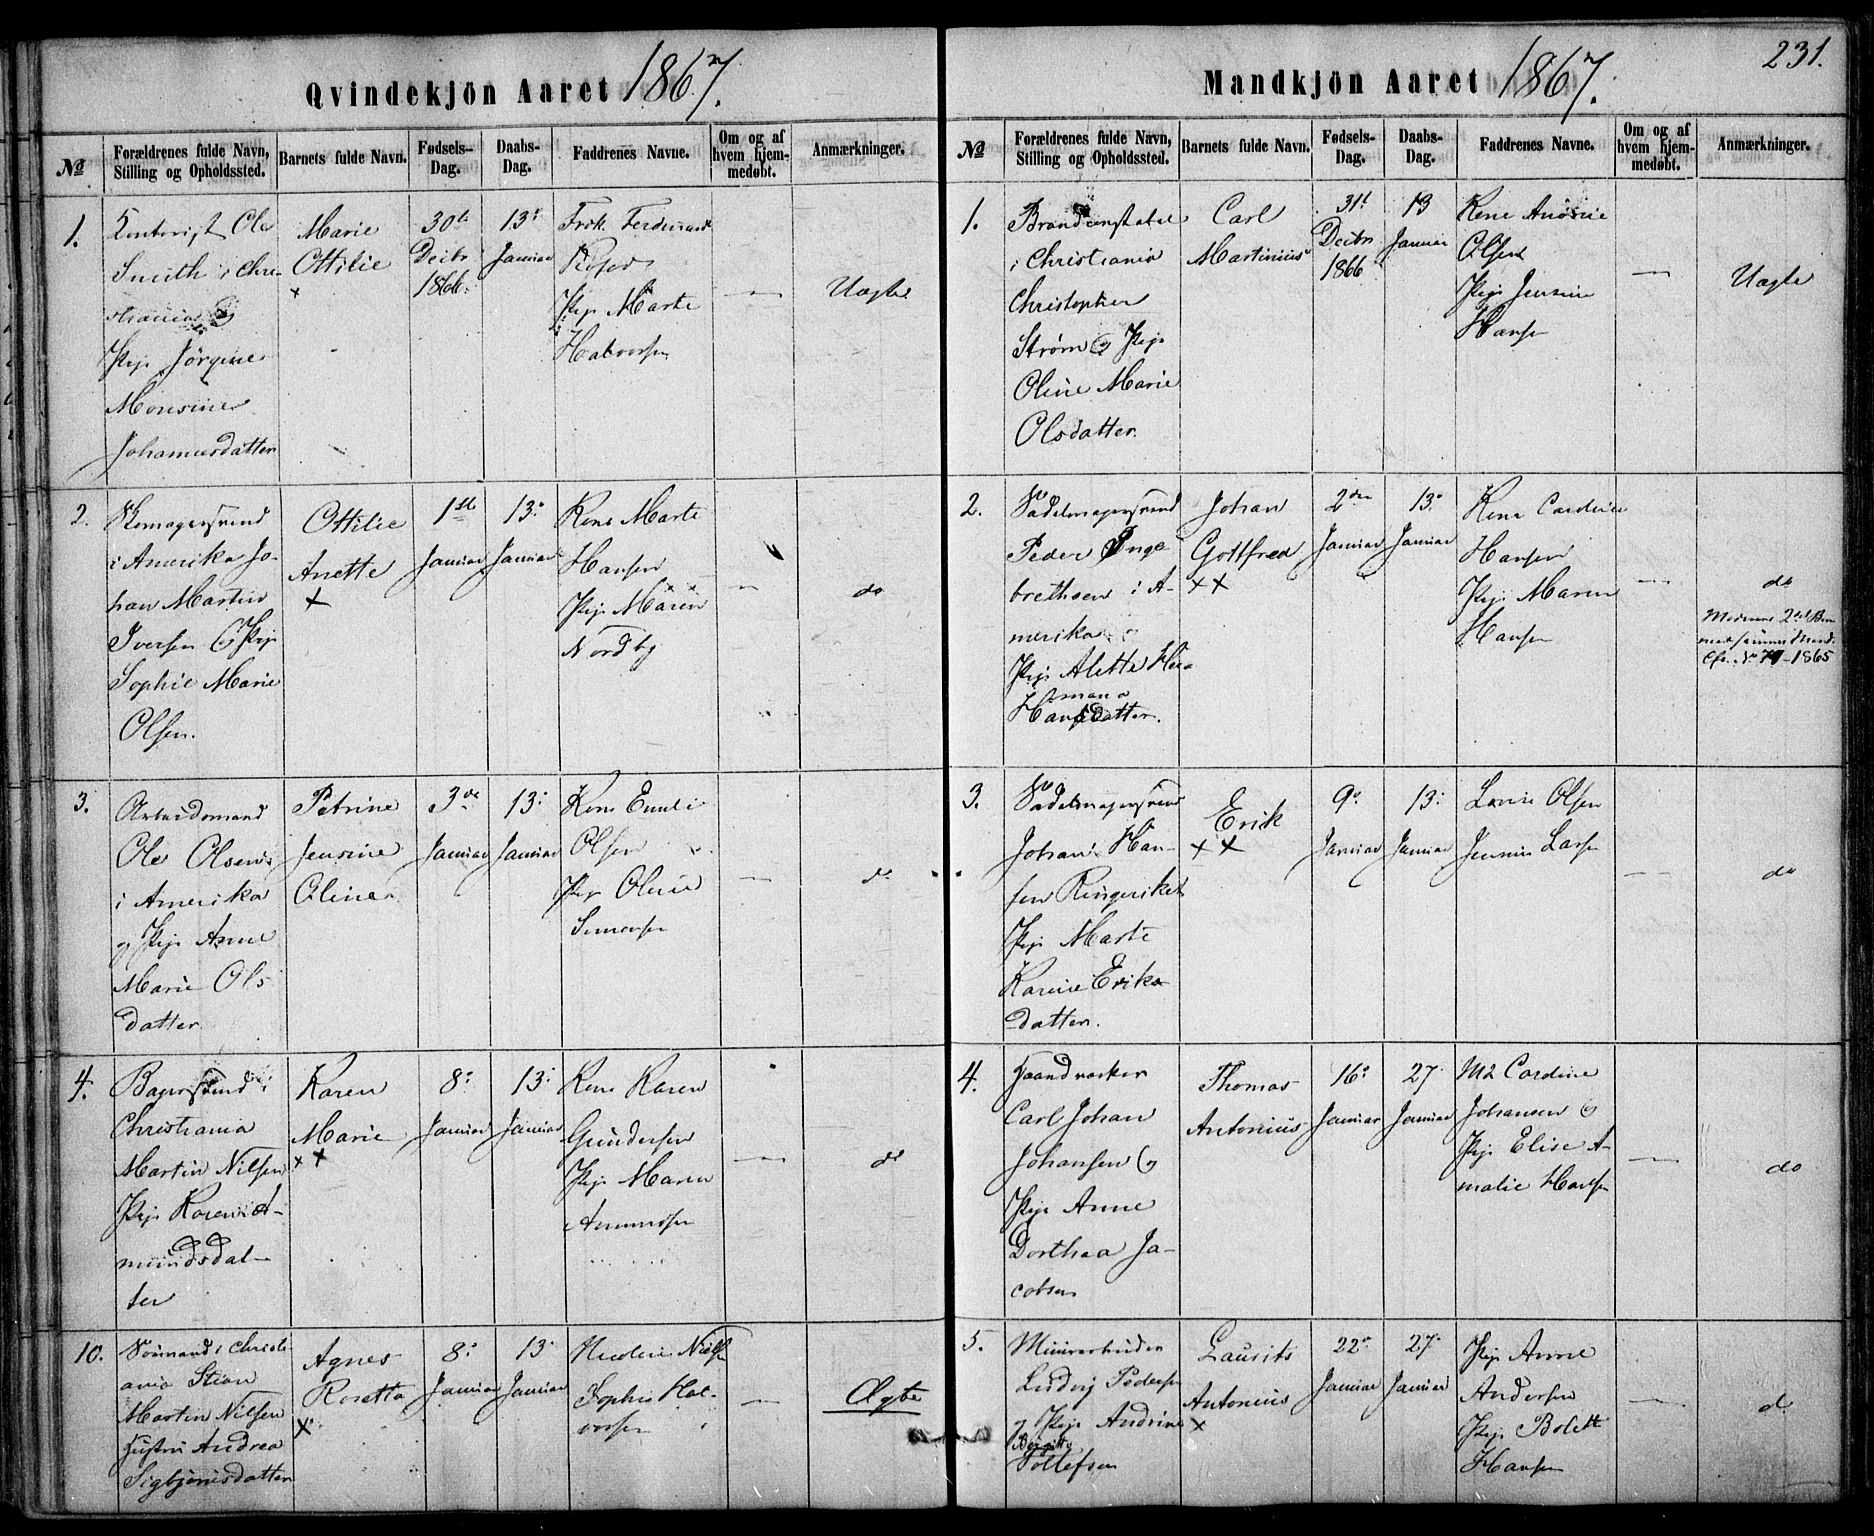 231.
Qvindekjön Aaret 1867.
№
Forældrenes fulde Navn,
Stilling og Opholdssted.
Barnets fulde Navn.
Fødsels-
Dag.
Daabs-
Dag.
Faddrenes Navne.
Om og af
hvem hjem-
medøbt.
Anmærkninger.
1.
Kontorist Ole
Smith i Chri-
stiania og
Pige Jörgine
Monsine
Johannesdatter
Marie
Ottilie
×
30te
Decbr
1866.
13:
Januar
Frdk. Ferdinand
Pige Marte
Halvorsen
—
Uægte
2.
Skomagersvend
i Amerika Jo-
han Martin
Iversen og Pige
Sophie Marie
Olsen.
Ottilie
Anette
×
1ste
Januar
13:
Januar
Kone Marte
Hansen
Pige Maren
Nordby
—
do
3.
Arbeidsmand
Ole Olsen
i Amerika
og Pige Anne
Marie Ols
datter
Petrine
Jensine
Oline
3de
Januar
13:
Januar
Kone Emilie
Olsen
Pige Oline
Simensen
—
do
4.
Bagersvend i
Christiania
Martin Nilsen
Pige Karen A-
mundsdat-
ter
Karen
Marie
× ×
8:
Januar
13:
Januar
Kone Karen
Gundersen
Pige Maren
Amundsen
—
do
10.
Sömand i Christi
ania Stian
Martin Nilsen
Hustru Andrea
Sigbjörnsdatter
Agnes
Rosetta
×
8:
Januar
13:
Januar
Nicoline Nilsen
Sophie Hal-
vorsen
—
Ægte
Mandkjön Aaret 1867.
№
Forældrenes fulde Navn,
Stilling og Opholdssted.
Barnets fulde Navn.
Fødsels-
Dag.
Daabs-
Dag.
Faddrenes Navne.
Om og af
hvem hjem-
medøbt.
Anmærkninger.
1.
Brandconstabel
i Christiania
Christopher
Strøm og Pige
Oline Marie
Olsdatter.
Carl
Martinius
31t
Decbr
1866
13
Januar
Kone
Olsen
Pige Jensine
Hansen
—
Uægte
2.
Sadelmagersvend
Peder Inge
brethsen i A-
merika og
Pige Alette Her
mana
Hansdatter.
Johan
Gottfred
× ×
2den
Januar
13:
Januar
Kone Cardine
Hansen
Pige Maren
Hansen
—
do
Moderens 2det Barn
med samme Mand.
Cfr. No 71-1865
3.
Sadelmagersvend
Johan Han-
sen Ringeriket
Pige Marte
Karine Eriks-
datter.
Erik
× ×
9:
Januar
13:
Januar
Lovise Olsen
Jensine Larsen
—
do
4.
Haandværker
Carl Johan
Johansen og
Pige Anne
Dorthea Ja-
cobsen
Thomas
Antonius
16:
Januar
27
Januar
Md Cardine
Johansen og
Pige Elise A-
malie Hansen
—
do
5.
Minerarbeider
Ludvig Pedersen
og Pige Andrine
Birgitte
Tollefsen
Lausits
Antonius
×
22:
Januar
27
Januar
Pige Anne
Andersen
Pige Bolette
Hansen
—
do